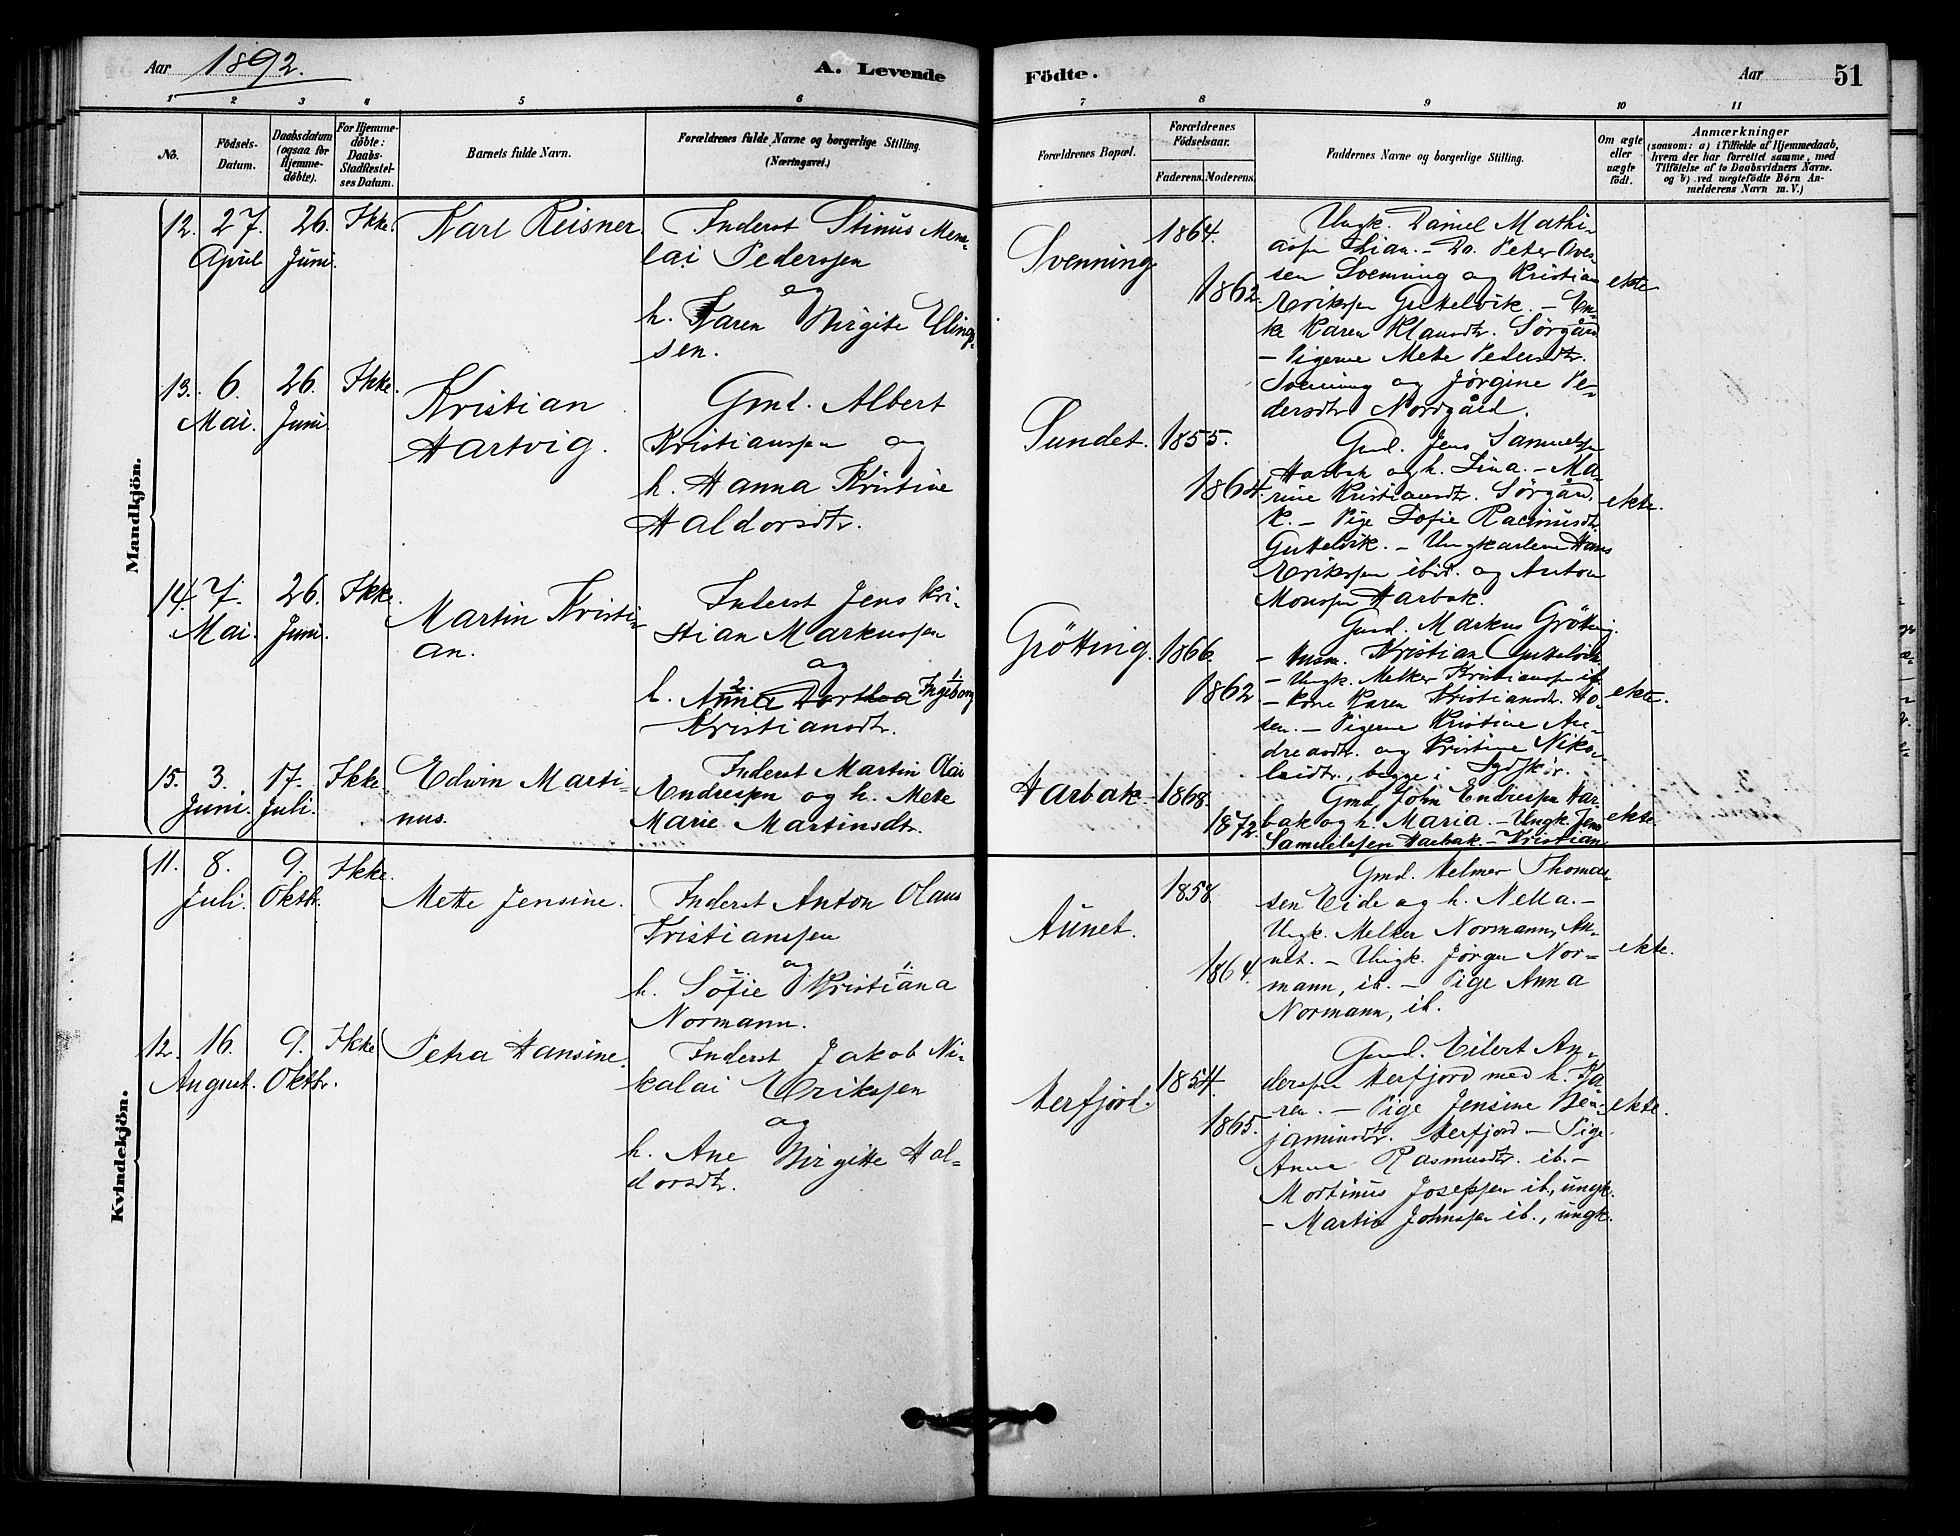 Aar 1892.
A. Levende
Födte.
Aar
51
1 2 3 4 5 6 7 8 9 10 11
No.
Födsels-
Datum.
Daabsdatum
(ogsaa for
Hjemme-
døbte).
For Hjemme-
døbte:
Daabs-
Stadfæstel-
ses Datum.
Barnets fulde Navn.
Forældrenes fulde Navne og borgerlige Stilling.
(Næringsvei.)
Forældrenes Bopæl.
Forældrenes
Födselsaar.
Faderens. Moderens.
Faddernes Navne og borgerlige Stilling.
Om ægte
eller
uægte
födt.
Anmærkninger
(saasom: a) i Tilfælde af Hjemmedaab,
hvem der har forrettet samme, med
Tilföielse af to Daabsvidners Navne.
og b) ved uægtefödte Börn An-
melderens Navn m. V.)
Mandkjön.
12. 27. April 26. Juni. Ikke.
Karl Reisner
Inderst Stinus
lai Pederssen
og
h. Karen Birgite Elling-
sen.
Svenning
1864.
1862.
Ungk. Daniel Mathi-
assen Lian. - Do. Peter
sen Svenning og Kristian
Erikssen Guttelvik. - En-
ke Karen Klausdtr. Sørgård
- Pigerne Mette Pedersdtr.
Svenning og Jørgine Pe-
dersdtr. Nordgård.
ekte
13. 6. Mai. 26. Juni Ikke.
Kristian
Hartvig.
Gmd. Albert
Kristianssen og
h. Hanna Kristine
Haldorsdtr.
Sundet.
1855.
1864.
Gmd. Jens Samuelssen
Harbak og h. Lina. - Ma-
rine Kristiansdtr. Sørgård.
K. - Pige Sofie Rasmusdtr.
Guttelvik. - Ungkarlene Hans
Erikssen ibid. og Anton
Monssen Harbak.
ekte.
14. 7. Mai. 26. Juni. Ikke.
Martin Kristi-
an.
Inderst Jens Kri-
stian Markussen
og
h. Anna Dorthea Ingeborg
Kristiansdtr.
Grøtting.
1866.
1862
Gmd. Markus Grøtting.
- Kristian Guttelvik.
- Ungk. Melker Kristianssen ib.
- Kone Karen Kristiansdtr. Ho-
sen. - Pigerne Kristine An-
dreasdtr. og Kristine Niko-
laidtr., begge i Sydskør.
ekte.
15. 3. Juni. 17. Juli. Ikke.
Edvin Marti-
nus.
Inderst Martin Olai
Andressen og h. Mette
Marie Martinsdtr.
Harbak
1868.
1872.
Gmd. John Endressen Har-
bak og h. Maria. - Ungk. Jens
Samuelssen Harbak. - Kristian
ekte.
Kvindekjön.
11. 8. Juli. 9. Oktbr. Ikke.
Mette Jensine.
Inderst Anton Olaus
Kristianssen
og
h. Sofie Kristiana
Normann.
Aunet.
1858
1864.
Gmd. Helmer Thomas-
sen Eide og h. Nella. -
Ungk. Melker Normann, Au-
net. - Ungk. Jørgen Nor-
mann, ib. - Pige Anna
Normann, ib.
ekte.
12. 16. August. 9. Oktbr. Ikke
Petra Hansine.
Inderst Jakob Ni-
kolai Erikssen
og
h. Ane Birgitte Hal-
dorsdtr.
Herfjord.
1854.
1865.
Gmd. Eilert An-
derssen Herfjord med h. Ka-
ren. - Pige Jensine Ben-
jaminsdtr. Herfjord - Pige
Anne Rasmusdtr. ib. -
Mortinus Josefssen ib., ungk.
- Martin Johnssen ib., ungk.
ekte.